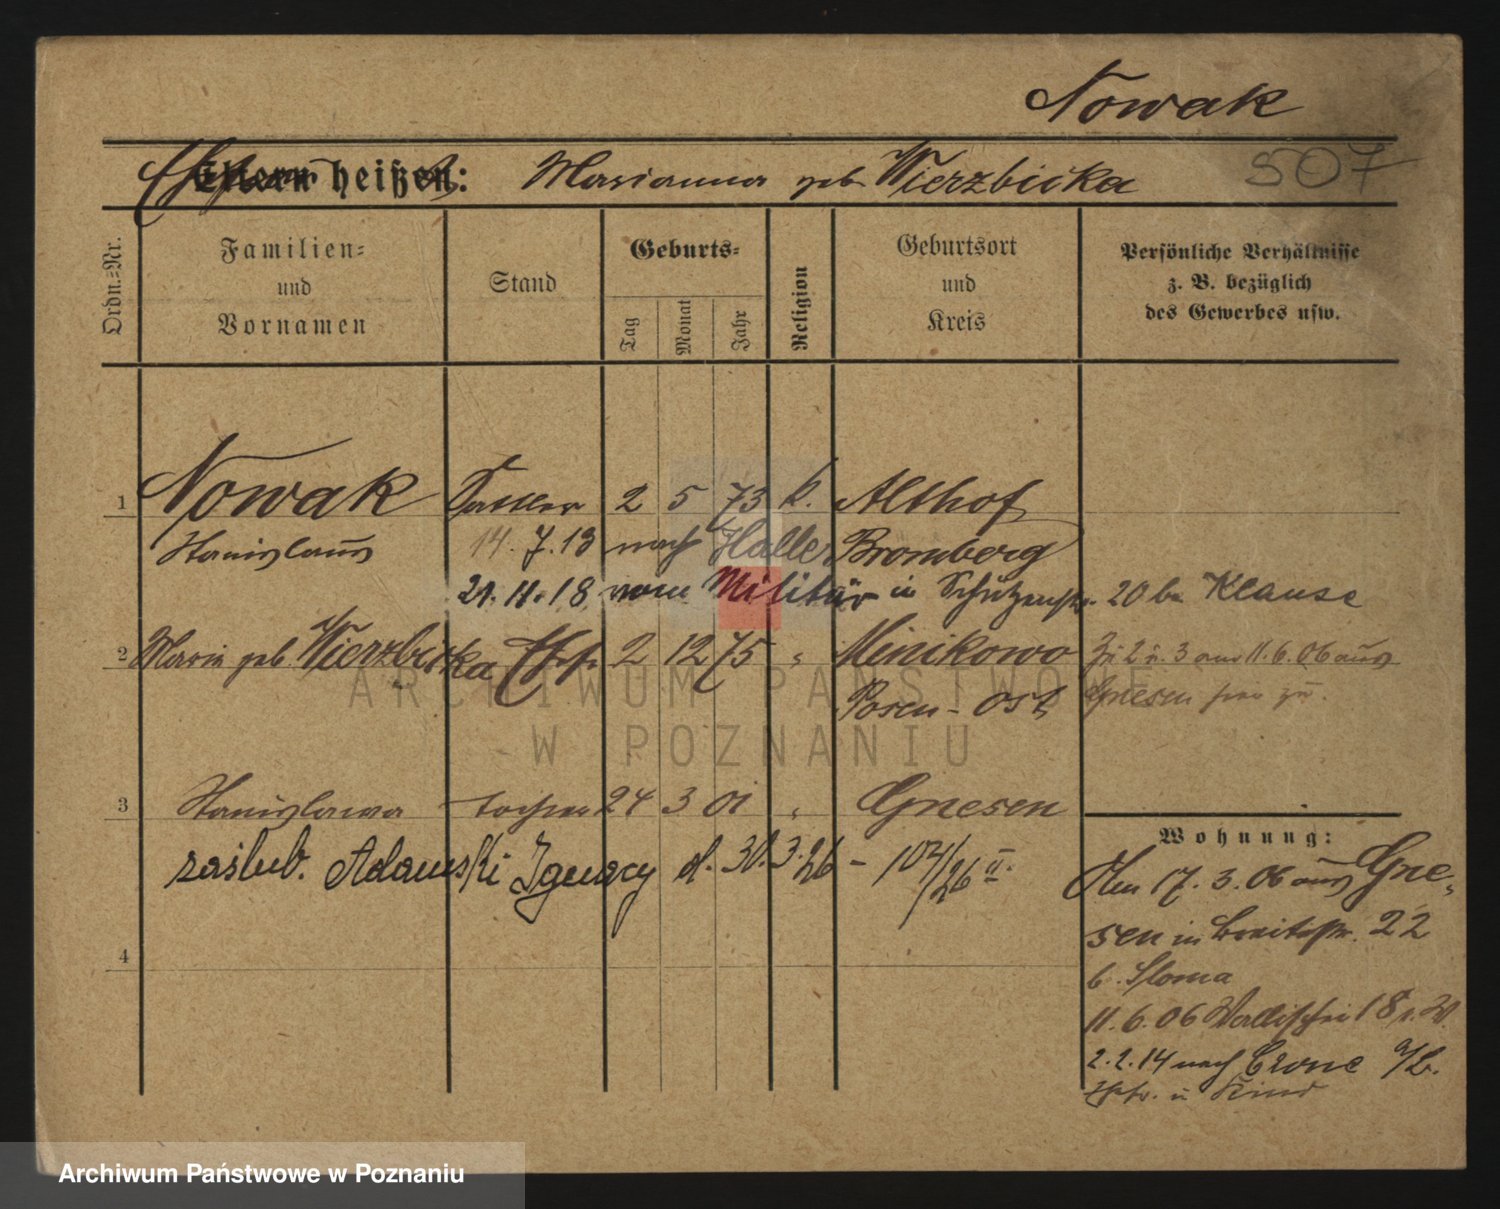 Nowak
Eltern heißen: Marianna geb Wierzbicka 507
Ordn.=Nr.
Familien=
und
Vornamen
Stand
Geburts=
Tag
Monat
Jahr
Religion
Geburtsort
und
Kreis
Persönliche Verhältnisse
z. B. bezüglich
des Gewerbes usw.
1 Nowak Sattler 2 5 73 k. Althof
Stanislaus 14. 7. 13 nach Halle Bromberg
21. 11. 18 vom Militär in Schützenstr. 20 bei Klause
2 Maria geb. Wierzbicka Ehefr. 2 12 75 " Minikowo Zu 2 u. 3 am 11. 6. 06 aus
Posen - Ost Gnesen hier zu.
3 Stanislawa Tochter 24 3 01 " Gnesen
zaślub. Adamski Ignacy d. 30. 3. 26 - 102/26 II.
4
Wohnung:
Am 17. 3. 06 aus Gne-
sen in Breitestr. 22
b. Sloma
11. 6. 06 Wallischei 18
2. 2. 14 nach Crone a/B.
Ehefr. u Kind
ARCHIWUM PAŃSTWOWE
W POZNANIU
Archiwum Państwowe w Poznaniu